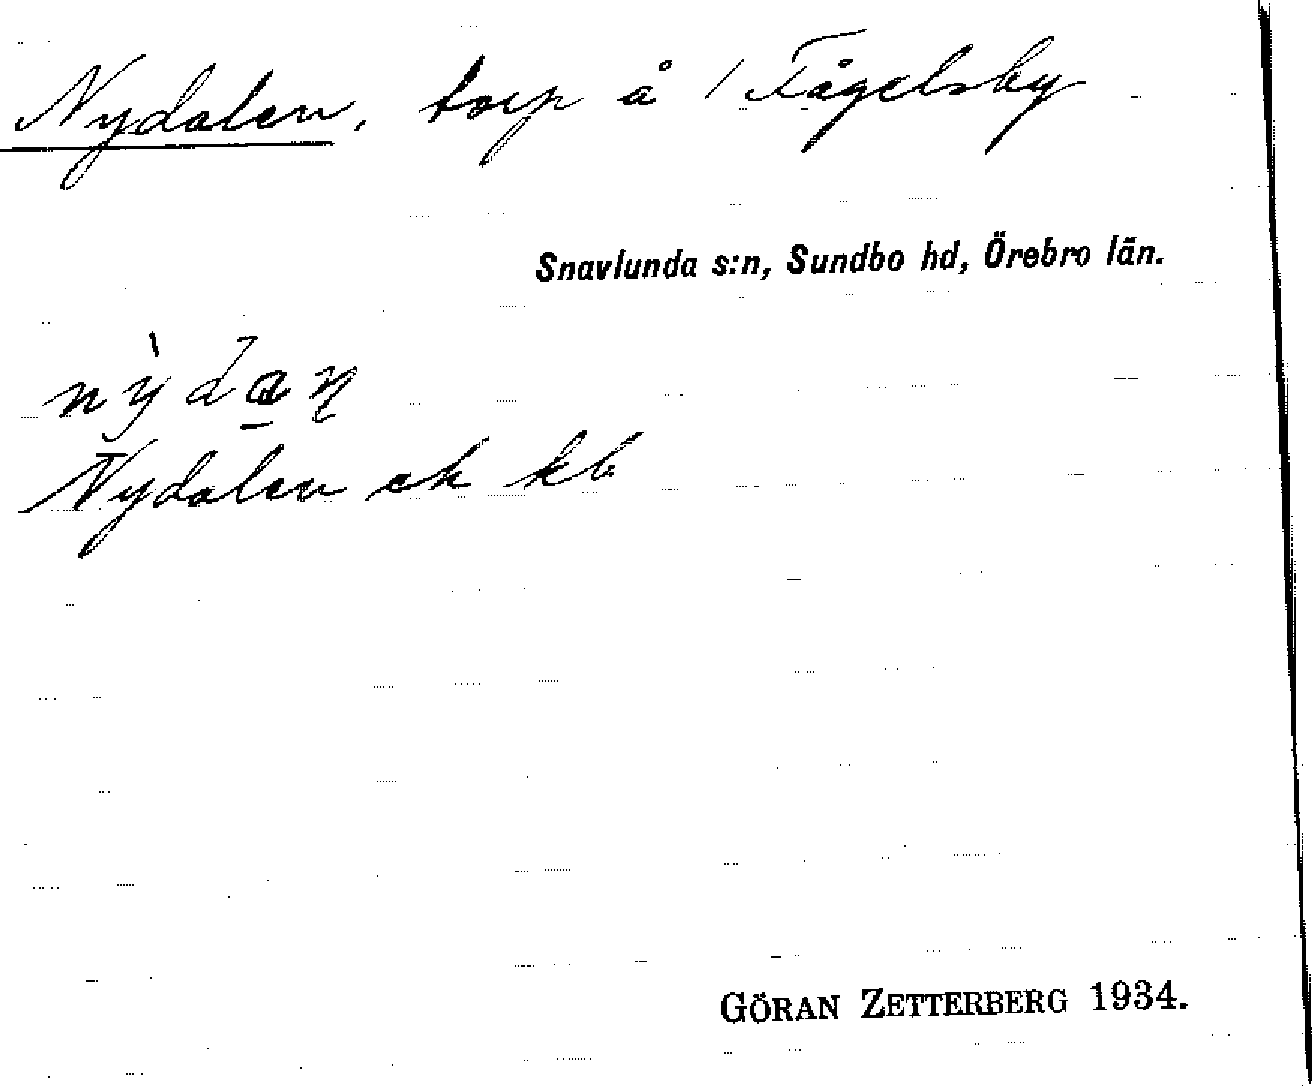 Nydalen, torp å 1 Fågelsby
Snavlunda s:n, Sundbo hd, Örebro län.
Nydalen ek kb
GÖRAN ZETTERBERG 1934.